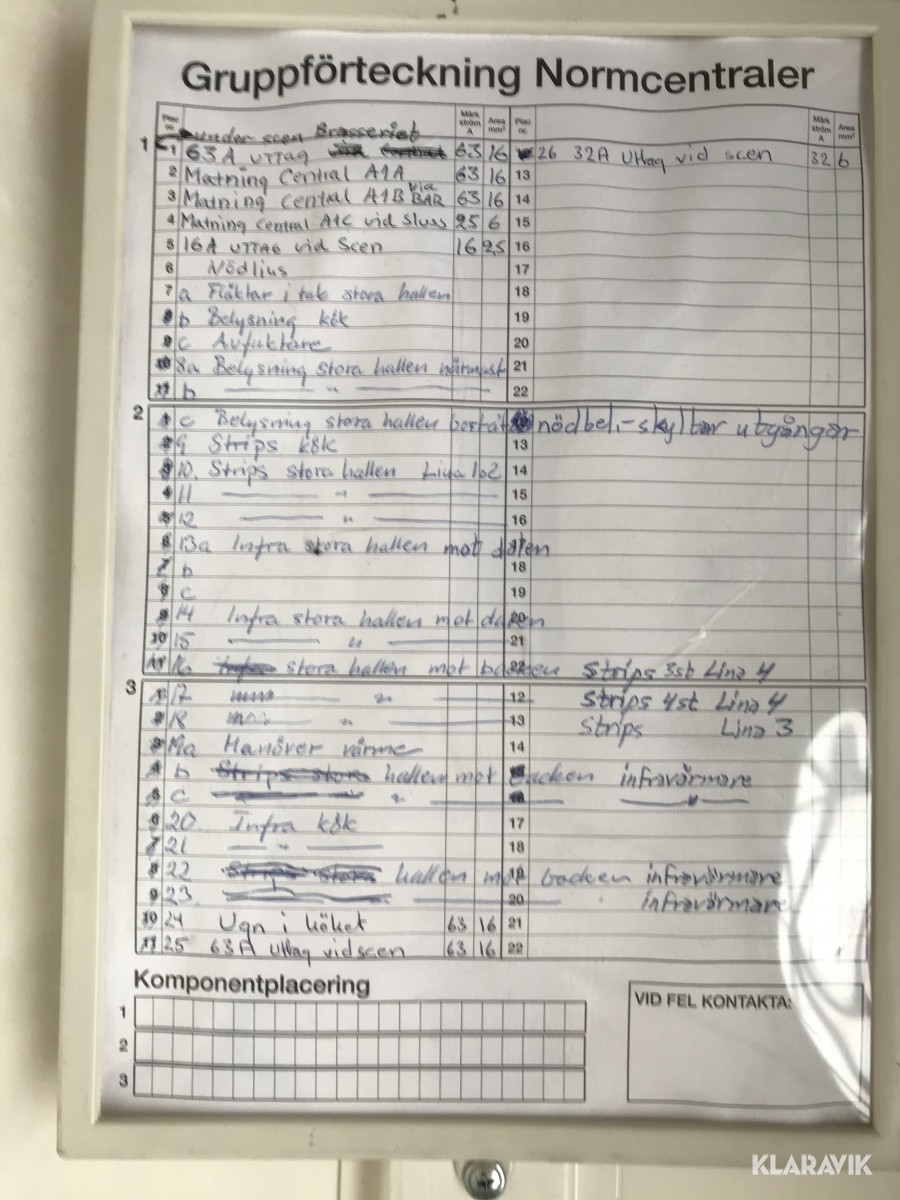 Gruppförteckning Normcentraler
Plac nr. Märk ström A Area mm² Plac nr Märk ström A Area mm²
under scen Brasseriet
1 1 63A UTTAG 63 16 26 32A Uttag vid scen 32 6
2 Matning Central A1A 63 16 13
3 Matning Central A1B via BAR 63 16 14
4 Matning Central A1C vid Sluss 25 6 15
5 16A UTTAG vid Scen 16 2,5 16
6 Nödljus 17
7 a Fläktar i tak stora hallen 18
8 b Belysning kök 19
9 c Avfuktare 20
10 8a Belysning stora hallen närmast 21
11 b — " — 22
2 1 c Belysning stora hallen nödbel.-skyltar utgångar
2 9 Strips kök 13
3 10. Strips stora hallen Lina 1o2 14
4 11 — " — 15
5 12 — " — 16
6 13a Infra stora hallen mot dalen
7 b 18
8 c 19
9 14 Infra stora hallen mot dalen 20
10 15 — " — 21
11 16 stora hallen mot backen 22 Strips 3st Lina 4
3 1 17 — " — 12 Strips 4st Lina 4
2 18 — " — 13 Strips Lina 3
3 19a Manöver värme 14
4 b hallen mot backen infravärmare
5 c — " — — " —
6 20. Infra kök 17
7 21 — " — 18
8 22 hallen mot backen infravärmare
9 23 — 20 infravärmare
10 24 Ugn i köket 63 16 21
11 25 63A Uttag vid scen 63 16 22
Komponentplacering
1
2
3
VID FEL KONTAKTA:
KLARAVIK